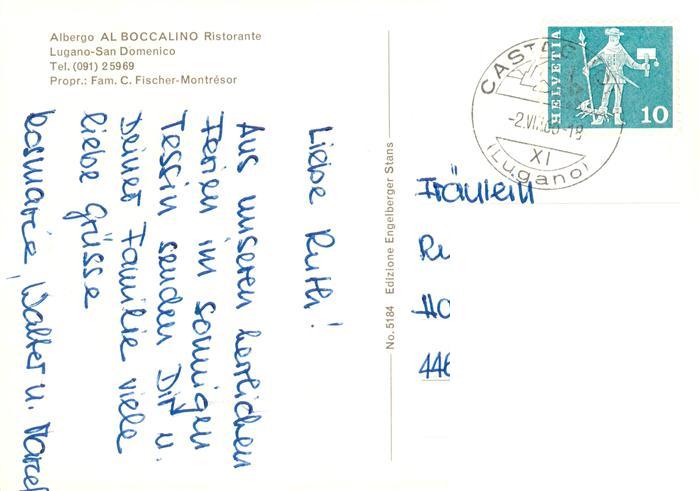 Albergo AL BOCCALINO Ristorante
Lugano-San Domenico
Tel. (091) 2 59 69
Propr.: Fam. C. Fischer-Montrésor
Liebe Ruth!
Aus unseren herrlichen
Ferien im sonnigen
Tessin senden Dir u.
Deiner Familie viele
liebe Grüsse
Rosmarie, Walter u. Marcel
No. 5184 Edizione Engelberger Stans
HELVETIA
10
XI
(Lugano)
Fräulein
Ru
Ho
446